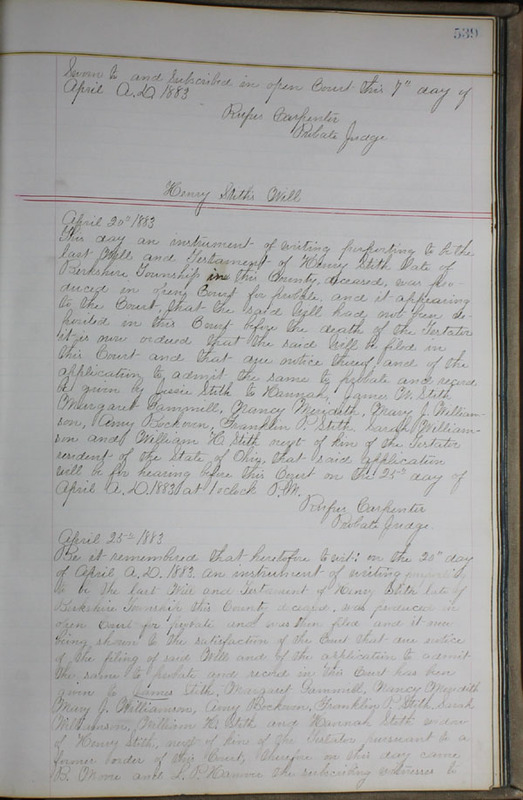 539
Sworn to and Subscribed in open Court this 7" day of
April A.D. 1883
Rufus Carpenter
Probate Judge
Henry Stiths Will
April 20" 1883
This day an instrument of writing purporting to be the
last Will and Testament of Henry Stith late of
Berkshire Township in this County, deceased, was pro-
duced in open Court for probate, and it appearing
to the Court, that the said Will had not been de-
posited in this Court before the death of the Testator
it is now ordered that the said Will be filed in
this Court and that due notice thereof and of the
application to admit the same to probate and record
be given by Jessie Stith to Hannah, James W. Stith
Margaret Gammill, Nancy Meredith, Mary J. William-
son, Amy Rockoven, Franklin P. Stith, Sarah William-
son and William H. Stith next of kin of the Testator
resident of the State of Ohio, that said application
will be for hearing before this Court on the 25th day of
April A.D. 1883 at 1 o'clock P.M.
Rufus Carpenter
Probate Judge.
April 25th 1883
Be it remembered that heretofore to wit: on the 20" day
of April A.D. 1883. an instrument of writing purporting
to be the last Will and Testament of Henry Stith late of
Berkshire Township this County deceased, was produced in
open Court for probate and was then filed and it now
being shown to the satisfaction of the Court that due notice
of the filing of said Will and of the application to admit
the same to probate and record in this Court has been
given to James Stith, Margaret Gammill, Nancy Meredith
Mary J. Williamson, Amy Rockoven, Franklin P. Stith, Sarah
Williamson, William H. Stith and Hannah Stith widow
of Henry Stith, next of kin of the Testator pursuant to a
former order of this Court, therefore on this day came
B. Moore and the subscribing witnesses to